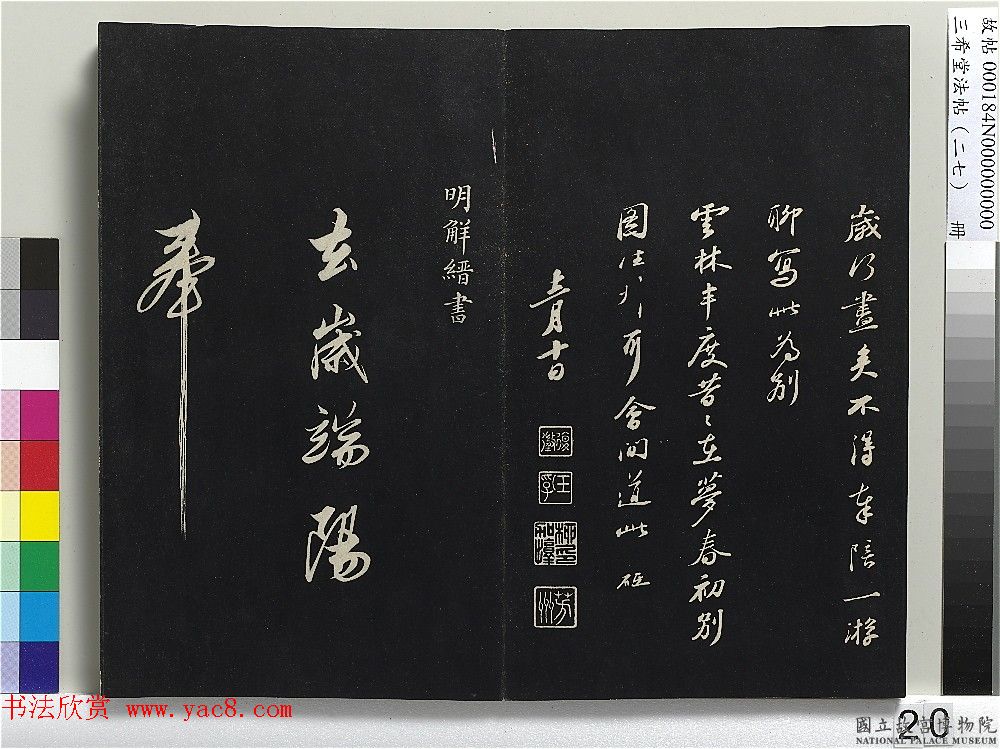 歲行盡矣不得奉陪一游
聊寫此為別
雲林丰度昔〻在夢春初別
圖
可會間道此
十日
明解縉書
去歲端陽
奉
故帖000184N000000000
三希堂法帖(二七) 冊
书法欣赏 www.yac8.com
20
國立故宮博物院
NATIONAL PALACE MUSEUM